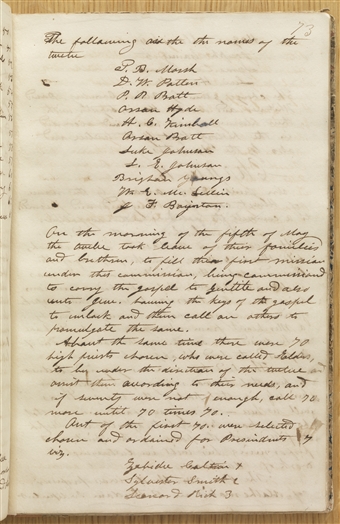 73
The following are the the names of the
twelve
T. B. Marsh
D. W. Patten
P. P. Pratt
Orson Hyde
H. C. Kimball
Orson Pratt
Luke Johnson
L. E. Johnson
Brigham Youngs
W. E. Mc Lellin
J. F. Boynton.
On the morning of the fifth of May
the twelve took leave of their families
and brethren, to fill their first mission
under this commission, being commissioned
to carry the gospel to Gentile and also
unto Jew. having the keys of the gospel
to unlock and then call on others to
promulgate the same.
About the same time there were 70
high priests chosen, who were called
to be under the direction of the twelve
assist them according to their needs, and
if seventy were not enough, call 70
more until 70 times 70.
Out of the first 70 were selected
chosen and ordained for Presidents 7
viz.
Coltrin 1
Sylvester Smith 2
Leonard Rich 3